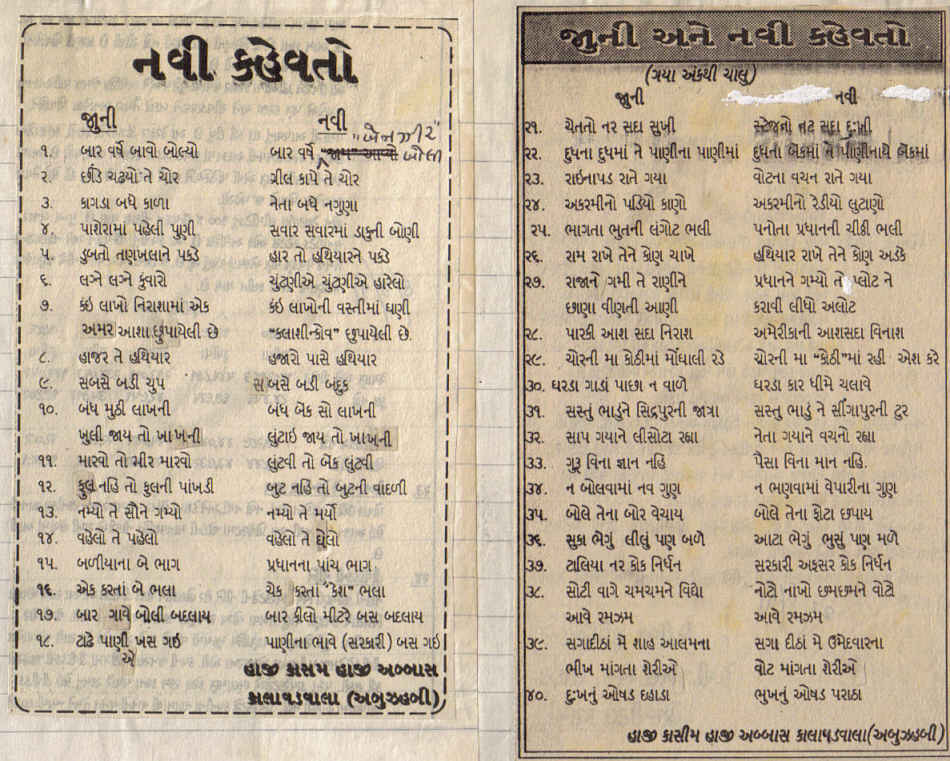 નવી કહેવતો
જુની નવી
"બેનઝીર"
૧. બાર વર્ષે બાવો બોલ્યો બાર વર્ષે "જામ" આવ્યો બોલી
૨. છીંડે ચઢયો તે ચોર ગ્રીલ કાપે તે ચોર
૩. કાગડા બધે કાળા નેતા બધે નગુણા
૪. પાશેરામાં પહેલી પુણી સવાર સવારમાં ડાકુની બોણી
૫. ડુબતો તણખલાને પકડે હાર તો હથિયારને પકડે
૬. લગ્ને લગ્ને કુંવારો ચુંટણીએ ચુંટણીએ હારેલો
૭. કંઇ લાખો નિરાશામાં એક કંઇ લાખોની વસ્તીમાં ઘણી
અમર આશા છુપાયેલી છે "કલાશીન્કોવ" છુપાયેલી છે.
૮. હાજર તે હથિયાર હજારો પાસે હથિયાર
૯. સબસે બડી ચુપ સબસે બડી બંદુક
૧૦. બંધ મુઠી લાખની બંધ બેંક સો લાખની
ખુલી જાય તો ખાખની લુંટાઇ જાય તો ખાખની
૧૧. મારવો તો મીર મારવો લુંટવી તો બેંક લુંટવી
૧૨. ફુલ નહિ તો ફુલની પાંખડી બુટ નહિ તો બુટની વાદળી
૧૩. નમ્યો તે સૌને ગમ્યો નમ્યો તે મર્યો
૧૪. વહેલો તે પહેલો વહેલો તે ઘેલો
૧૫. બળીયાના બે ભાગ પ્રધાનના પાંચ ભાગ
૧૬. એક કરતાં બે ભલા ચેક કરતાં "કેશ" ભલા
૧૭. બાર ગાવે બોલી બદલાય બાર કીલો મીટરે બસ બદલાય
૧૮. ટાઢે પાણી ખસ ગઇ પાણીના ભાવે (સરકારી) બસ ગઇ
એ
હાજી કાસમ હાજી અબ્બાસ
કાલાવડવાલા (અબુઝહબી)
જુની અને નવી કહેવતો
(ગયા અંકથી ચાલુ)
જુની નવી
૨૧. ચેતતો નર સદા સુખી સ્ટેજનો નટ સદા દુઃખી
૨૨. દુધના દુધમાં ને પાણીના પાણીમાં દુધના બેંકમાં ને પાણીનાયે બેંકમાં
૨૩. રાઇનાપડ રાતે ગયા વોટના વચન રાતે ગયા
૨૪. અકરમીનો પડિયો કાણો અકરમીનો રેડીયો લુટાણો
૨૫. ભાગતા ભુતની લંગોટ ભલી પનોતા પ્રધાનની ચીઠ્ઠી ભલી
૨૬. રામ રાખે તેને કોણ ચાખે હથિયાર રાખે તેને કોણ અડકે
૨૭. રાજાને ગમી તે રાણીને પ્રધાનને ગમ્યો તે પ્લોટ ને
છાણા વીણતી આણી કરાવી લીધો અલોટ
૨૮. પારકી આશ સદા નિરાશ અમેરીકાની આશસદા વિનાશ
૨૯. ચોરની મા કોઠીમાં મોંઘાલી રડે ચોરની મા "કોઠી"માં રહી એશ કરે
૩૦. ઘરડા ગાડાં પાછા ન વાળે ઘરડા કાર ધીમે ચલાવે
૩૧. સસ્તું ભાડુંને સિદ્રપુરની જાત્રા સસ્તુ ભાડું ને સીંગાપુરની ટુર
૩૨. સાપ ગયાને લીસોટા રહ્યા નેતા ગયાને વચનો રહ્યા
૩૩. ગુરૂ વિના જ્ઞાન નહિ પૈસા વિના માન નહિ.
૩૪. ન બોલવામાં નવ ગુણ ન ભણવામાં વેપારીના ગુણ
૩૫. બોલે તેના બોર વેચાય બોલે તેના ફોટા છપાય
૩૬. સુકા ભેગું લીલું પણ બળે આટા ભેગું ભુસું પણ મળે
૩૭. ટાલિયા નર કોક નિર્ધન સરકારી અફસર કોક નિર્ધન
૩૮. સોટી વાગે ચમચમને વિદ્યા નોટો નાખો છમછમને વોટો
આવે રમઝમ આવે રમઝમ
૩૯. સગાદીઠાં મેં શાહ આલમના સગા દીઠાં મેં ઉમેદવારના
ભીખ માંગતા શેરીએ વોટ માંગતા શેરીએ
૪૦. દુઃખનું ઓષડ દહાડા ભુખનું ઓષડ પરાઠા
હાજી કાસીમ હાજી અબ્બાસ કાલાવડવાલા(અબુઝહબી)